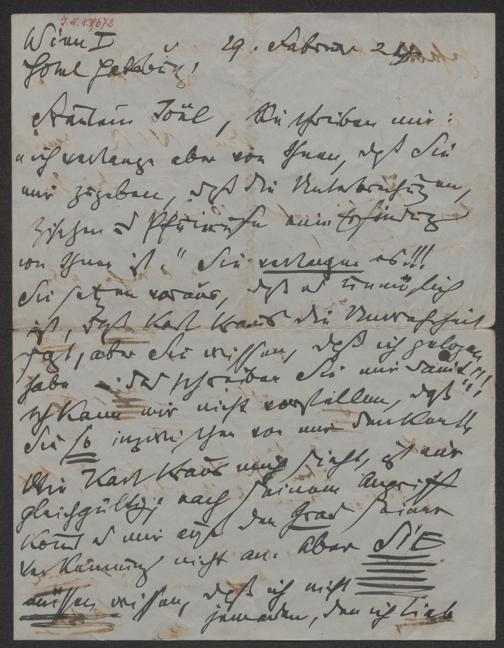 J.N. 139672
Wien I 29. Februar 24
Hotel
Fräulein Joël, Sie schreiben mir:
"ich verlange aber von Ihnen, daß Sie
mir zugeben, daß die Unterbrechungen,
Zischen und Pfuirufe eine Erfindung
von Ihnen ist." Sie verlangen es!!!
Sie setzen voraus, daß es unmöglich
ist, daß Karl Kraus die Unwahrheit
sagt, aber Sie wissen, daß ich gelogen
habe – das schreiben Sie mir damit!!!
Ich kann mir nicht vorstellen, daß
Sie so inzwischen vor mir
Wie Karl Kraus mich sieht, ist mir
gleichgültig; nach seinem Angriff
kommt es mir auf den Grad seiner
Verkennung nicht an. Aber SIE
müssen wissen, daß ich nicht
jemanden, den ich lieb